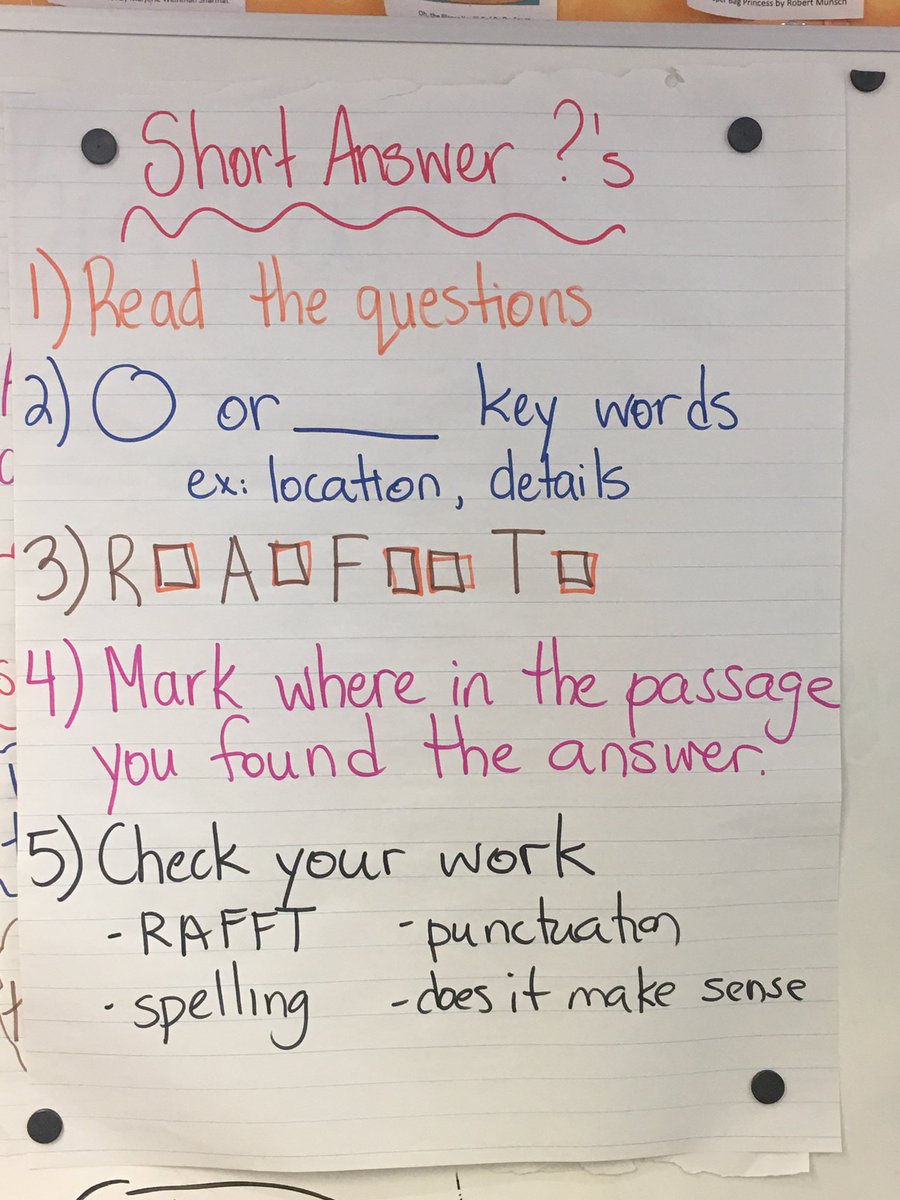 Princess by Robert Munsch
Short Answer ?'s
1) Read the questions
2) O or ____ key words
ex: location, details
3) R □ A □ F □□ T □
4) Mark where in the passage
you found the answer.
5) Check your work
- RAFFT - punctuation
- spelling - does it make sense